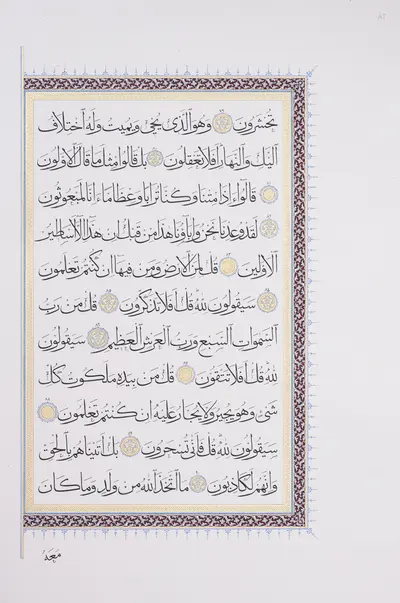 تحشرون وهو الذي يحيي ويميت وله اختلاف
الليل والنهار أفلا تعقلون بل قالوا مثل ما قال الأولون
قالوا أئذا متنا وكنا ترابا وعظاما أئنا لمبعوثون
لقد وعدنا نحن وآباؤنا هذا من قبل إن هذا إلا أساطير
الأولين قل لمن الأرض ومن فيها إن كنتم تعلمون
سيقولون لله قل أفلا تذكرون قل من رب
السموات السبع ورب العرش العظيم سيقولون
لله قل أفلا تتقون قل من بيده ملكوت كل
شيء وهو يجير ولا يجار عليه إن كنتم تعلمون
سيقولون لله قل فأنى تسحرون بل أتيناهم بالحق
وإنهم لكاذبون ما اتخذ الله من ولد وما كان
معه